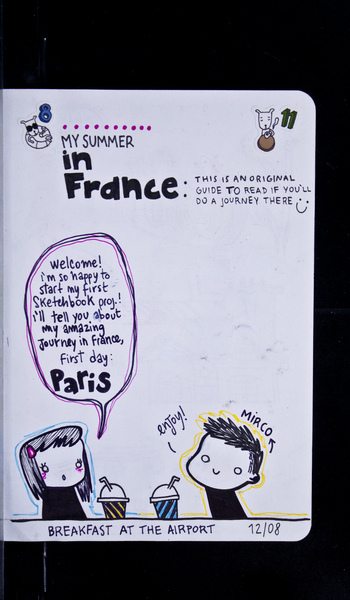 8
11
MY SUMMER
in
France:
THIS IS AN ORIGINAL
GUIDE TO READ IF YOU'LL
DO A JOURNEY THERE
Welcome!
i'm so happy to
start my first
SketchbOOK proj.!
i'll tell you about
my amazing
Journey in France,
First day:
Paris
enjoy!
MIRCO
BREAKFAST AT THE AIRPORT
12/08